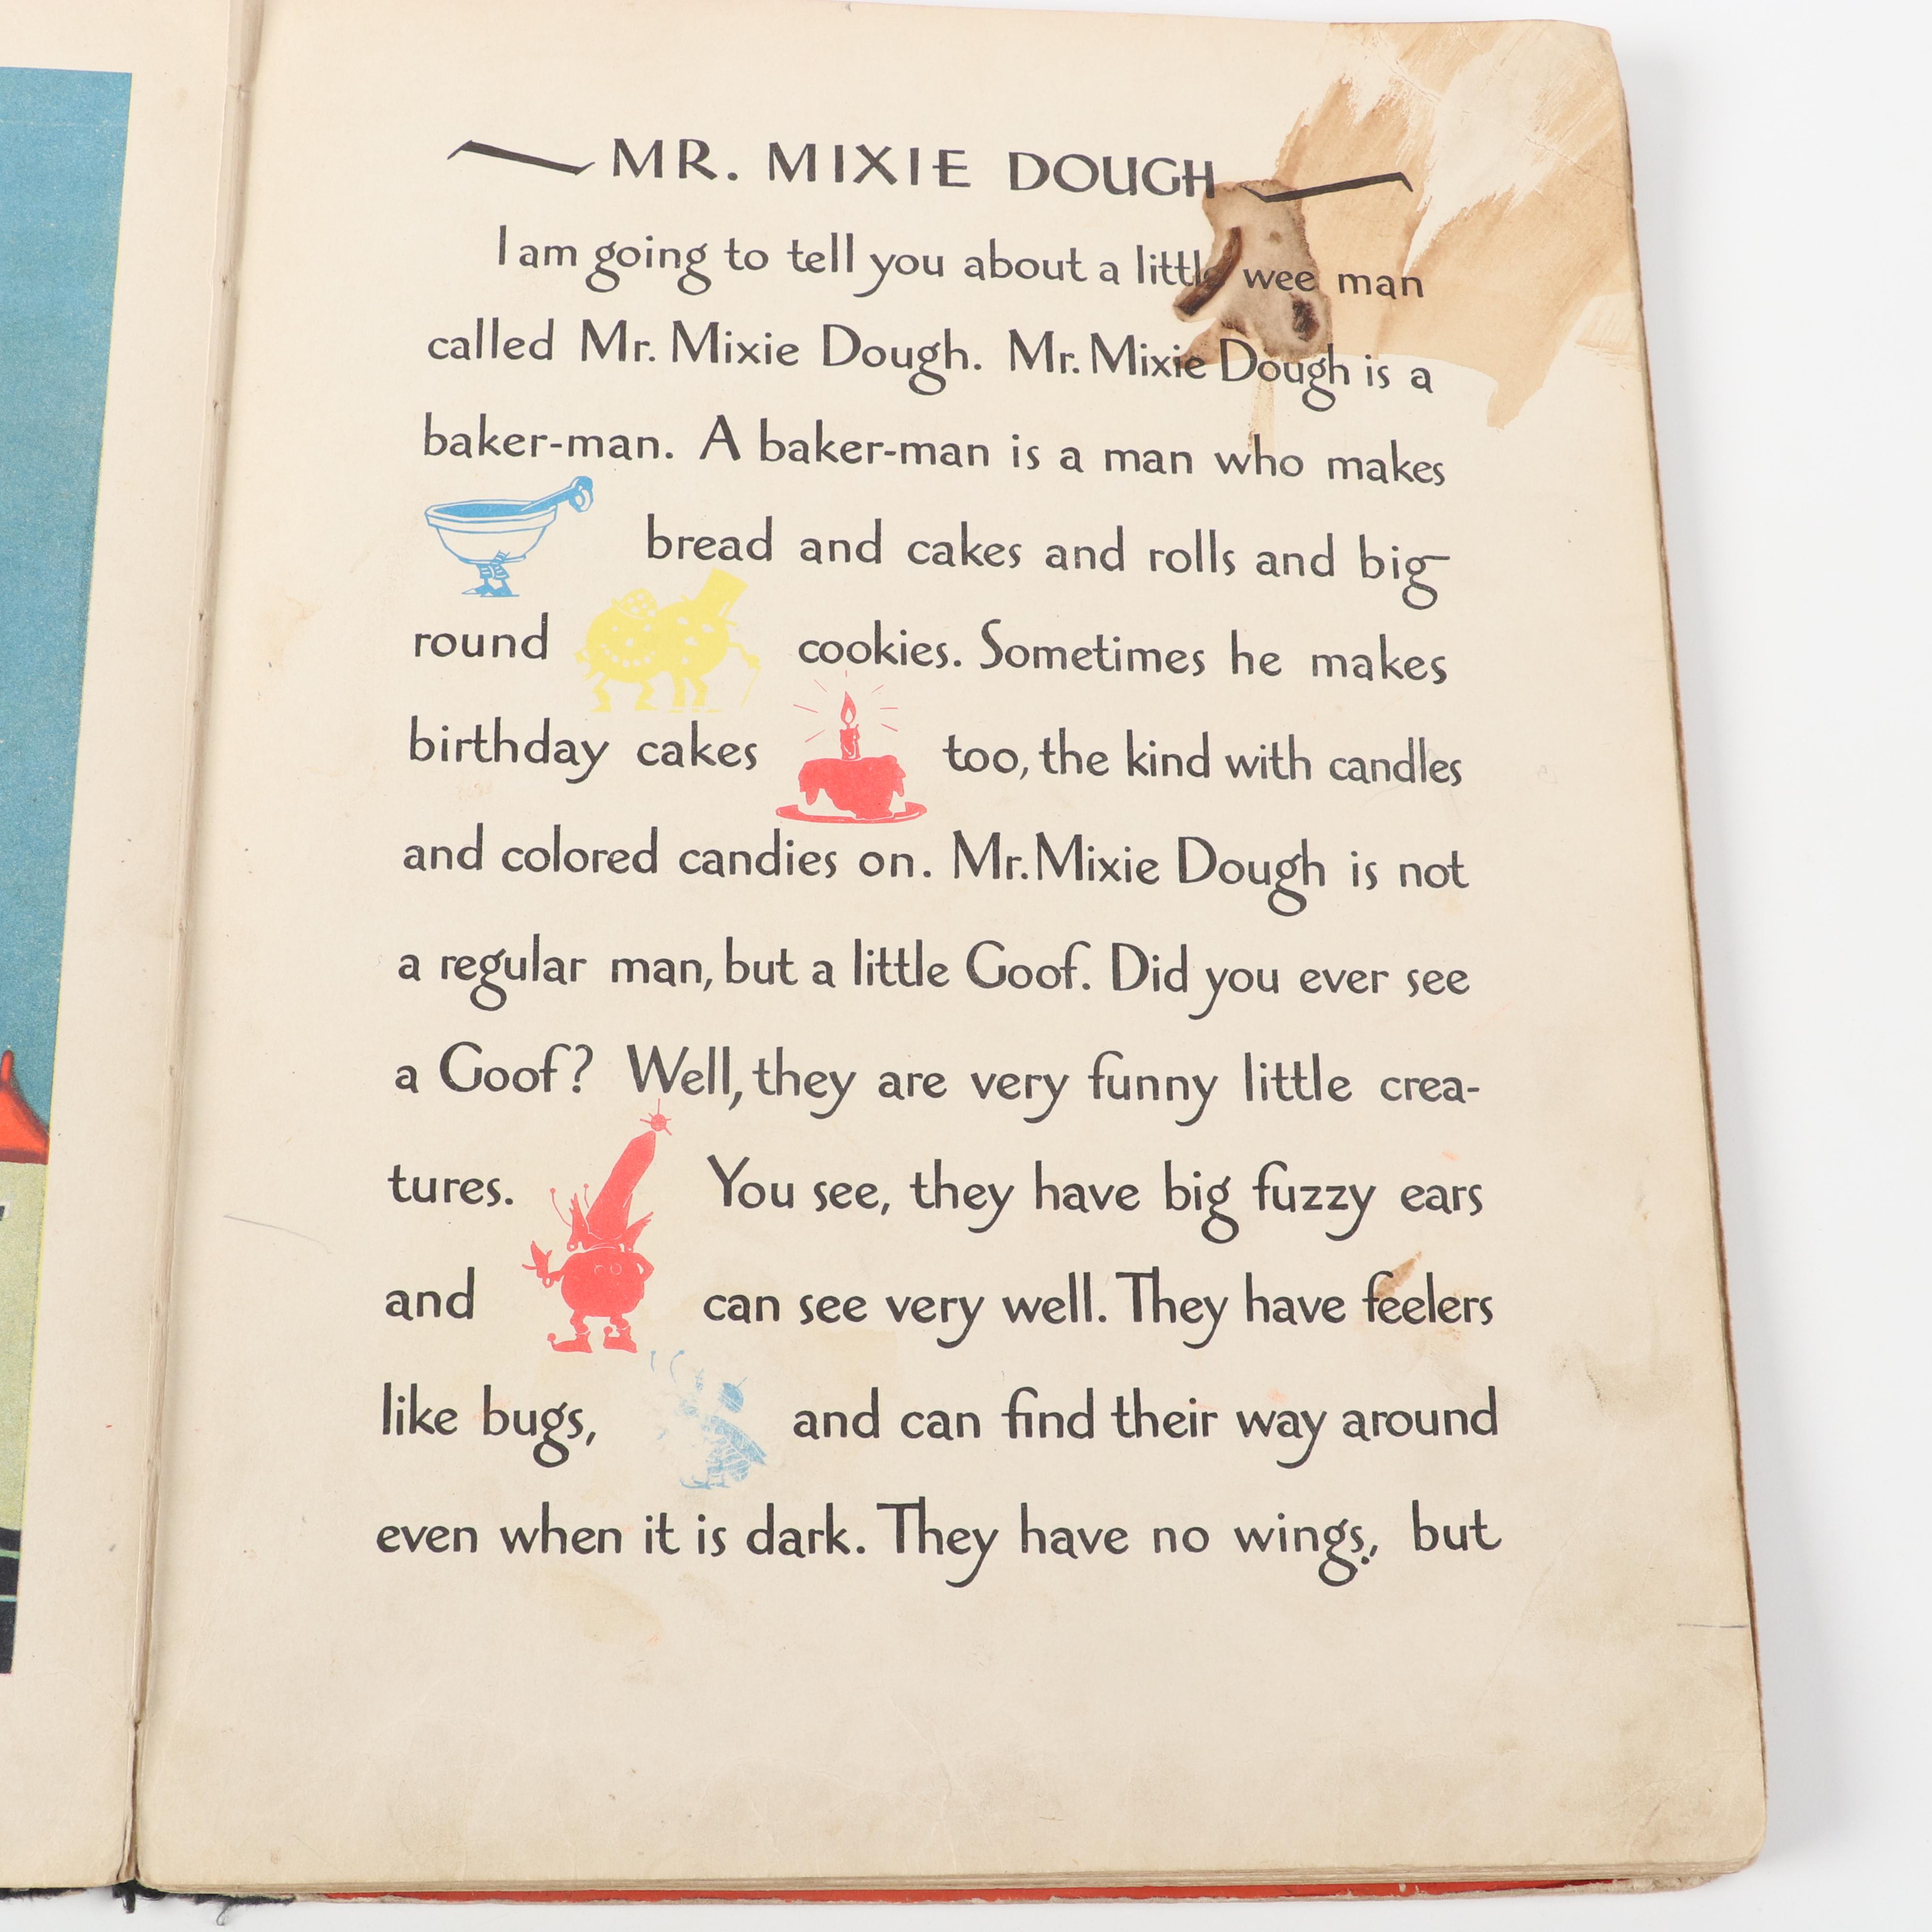 MR. MIXIE DOUGH
I am going to tell you about a little wee man
called Mr. Mixie Dough. Mr. Mixie Dough is a
baker-man. A baker-man is a man who makes
bread and cakes and rolls and big
round cookies. Sometimes he makes
birthday cakes too, the kind with candles
and colored candies on. Mr. Mixie Dough is not
a regular man, but a little Goof. Did you ever see
a Goof? Well, they are very funny little crea-
tures. You see, they have big fuzzy ears
and can see very well. They have feelers
like bugs, and can find their way around
even when it is dark. They have no wings, but